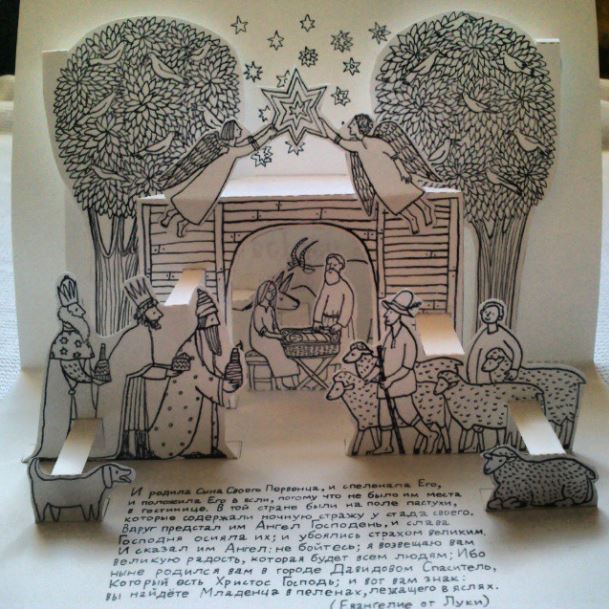 И родила Сына Своего Первенца, и спеленала Его,
и положила Его в ясли, потому что не было им места
в гостинице. В той стране были на поле пастухи,
которые содержали ночную стражу у стада своего.
Вдруг предстал им Ангел Господень, и слава
Господня осияла их; и убоялись страхом великим.
И сказал им Ангел: не бойтесь; я возвещаю вам
великую радость, которая будет всем людям; Ибо
ныне родился вам в городе Давидовом Спаситель,
Который есть Христос Господь; и вот вам знак:
вы найдёте Младенца в пеленах, лежащего в яслях.
(Евангелие от Луки)